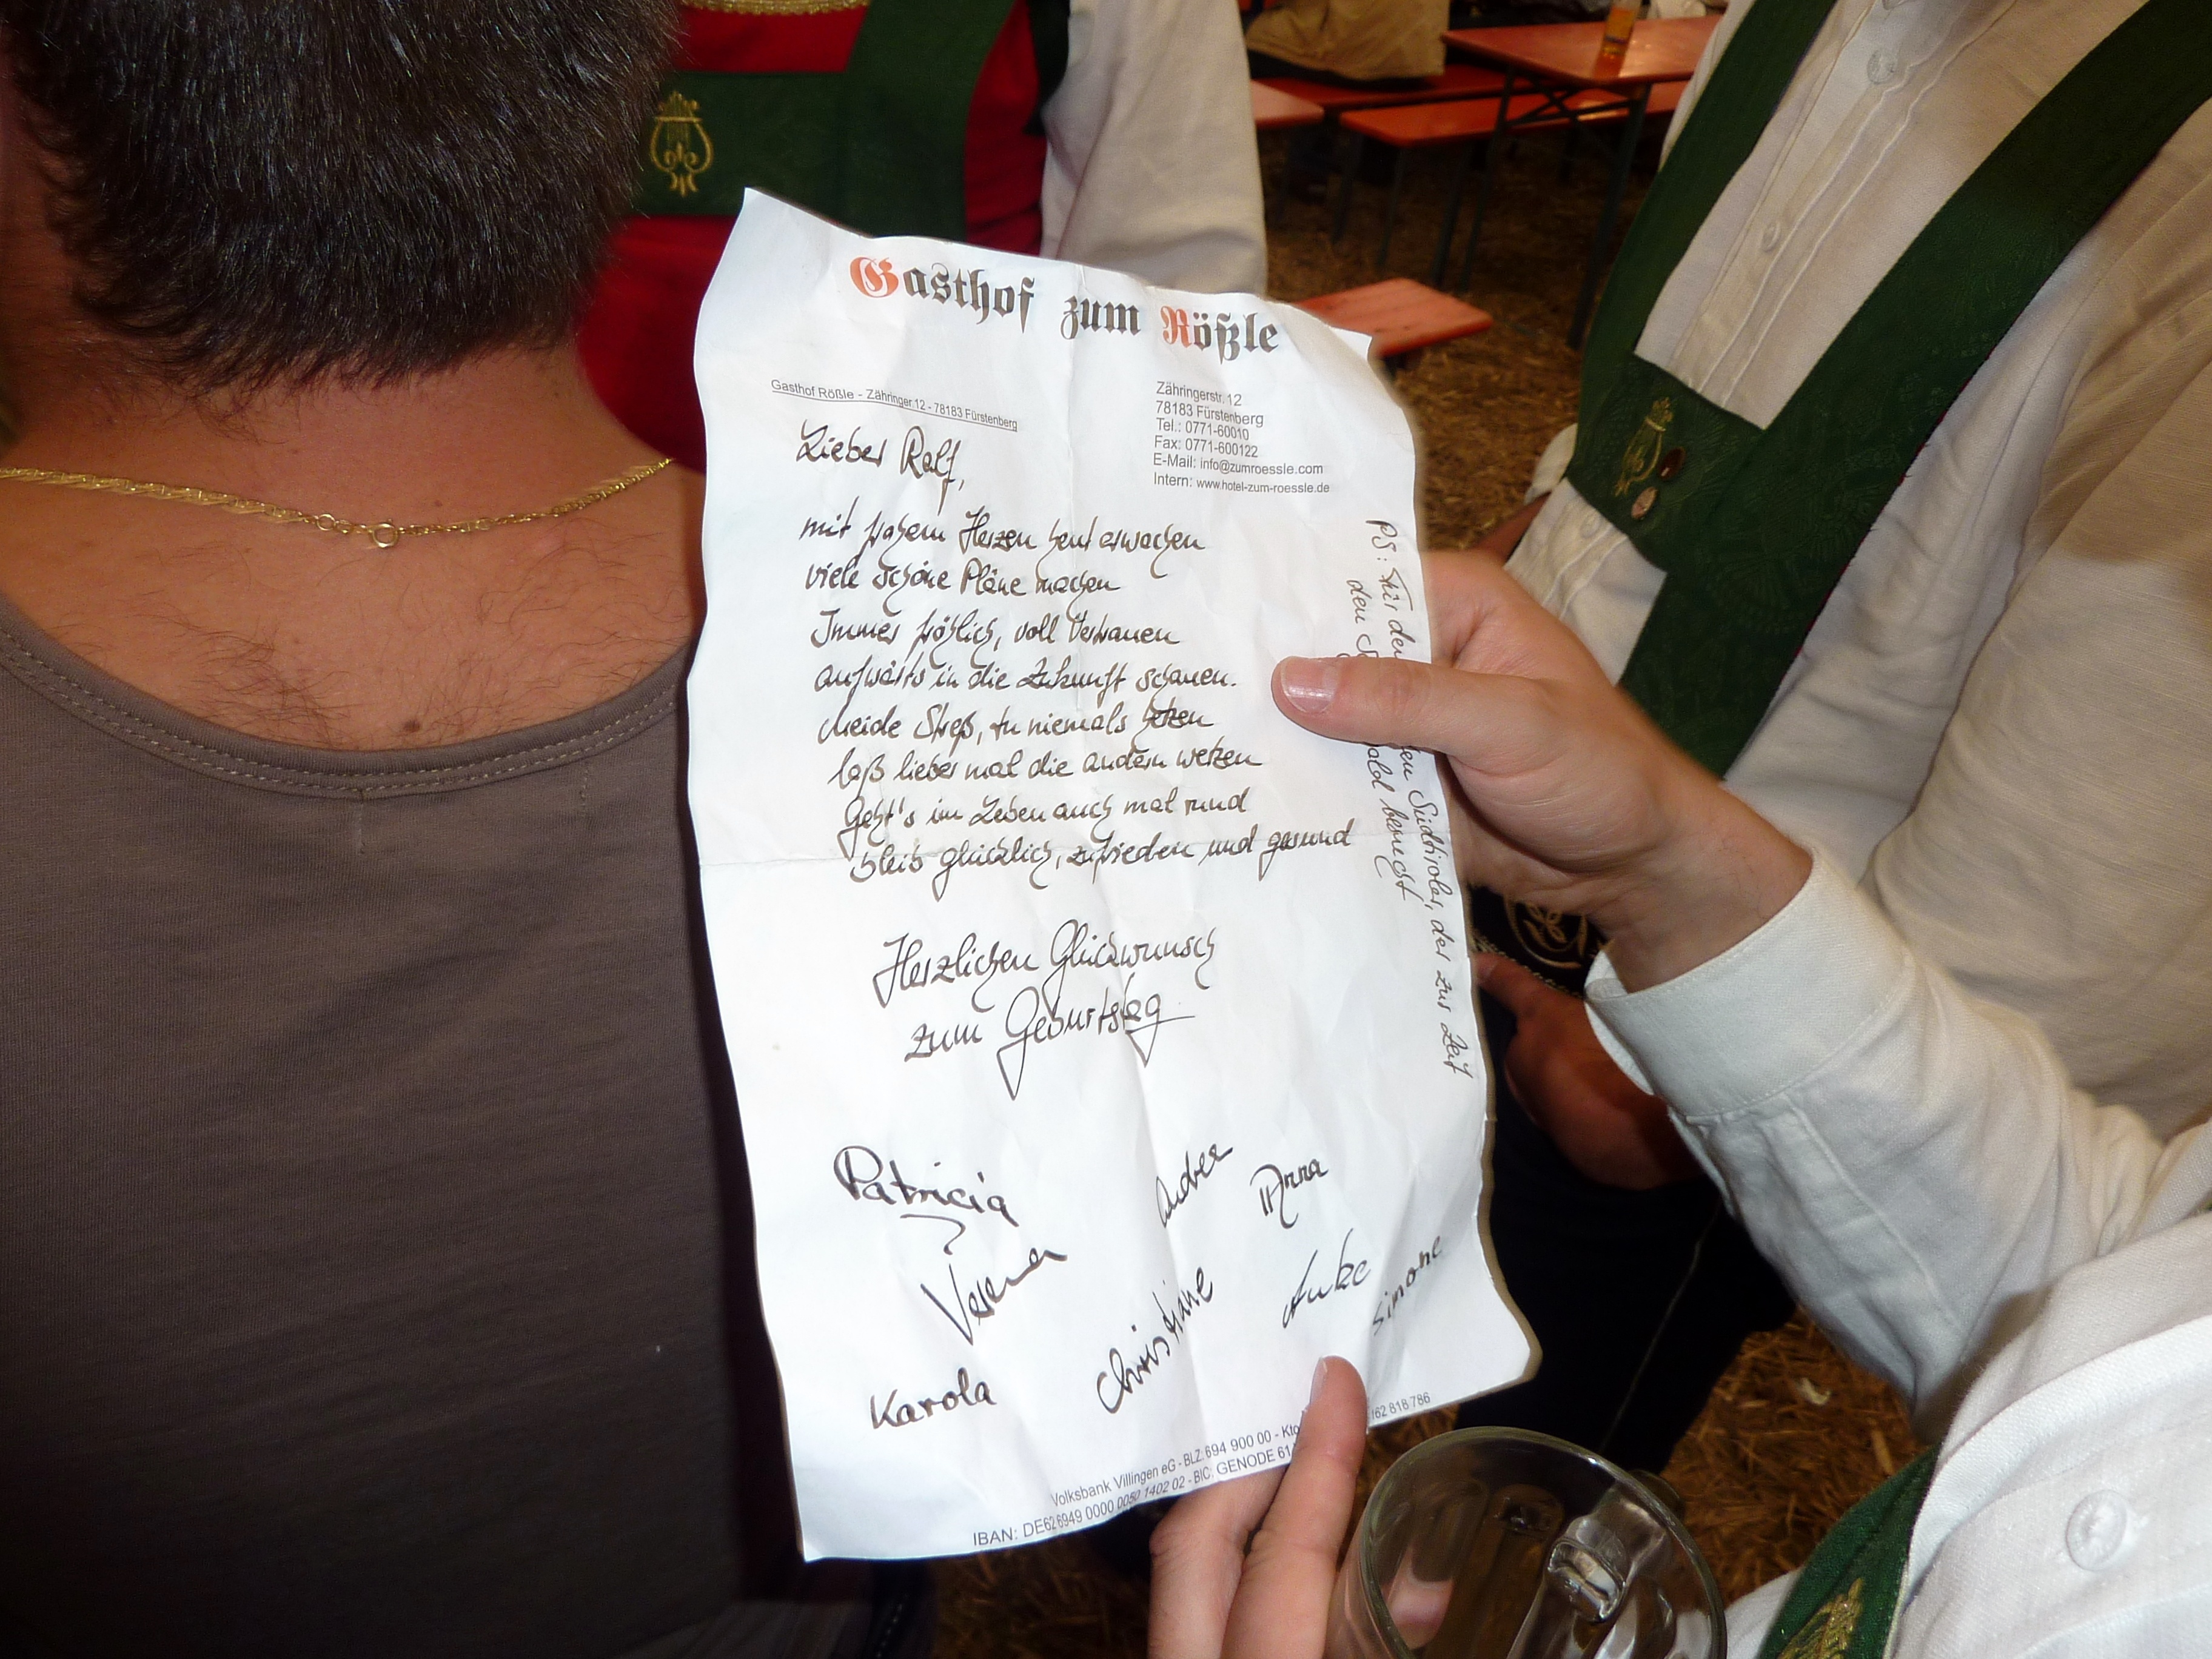 Gasthof zum Rößle
Gasthof Rößle - Zähringer.12 - 78183 Fürstenberg
Zähringerstr. 12
78183 Fürstenberg
Tel.: 0771-60010
Fax: 0771-600122
E-Mail: info@zumroessle.com
Intern: www.hotel-zum-roessle.de
Lieber Ralf,
mit frohem Herzen heut erwachen
viele schöne Pläne machen
Immer fröhlich, voll Vertrauen
aufwärts in die Zukunft schauen.
Meide Streß, tu niemals hetzen
laß lieber mal die andern wetzen
Geht's im Leben auch mal rund
bleib glücklich, zufrieden und gesund
Herzlichen Glückwunsch
zum Geburtstag
PS: Für den Südtiroler, der zur Zeit
den bereist
Patricia
Andrea
Anna
Verena
Christiane
Anke
Simone
Karola
Volksbank Villingen eG - BLZ: 694 900 00 - Kto
IBAN: DE62 6949 0000 0050 1402 02 - BIC: GENODE 61
162 818 786